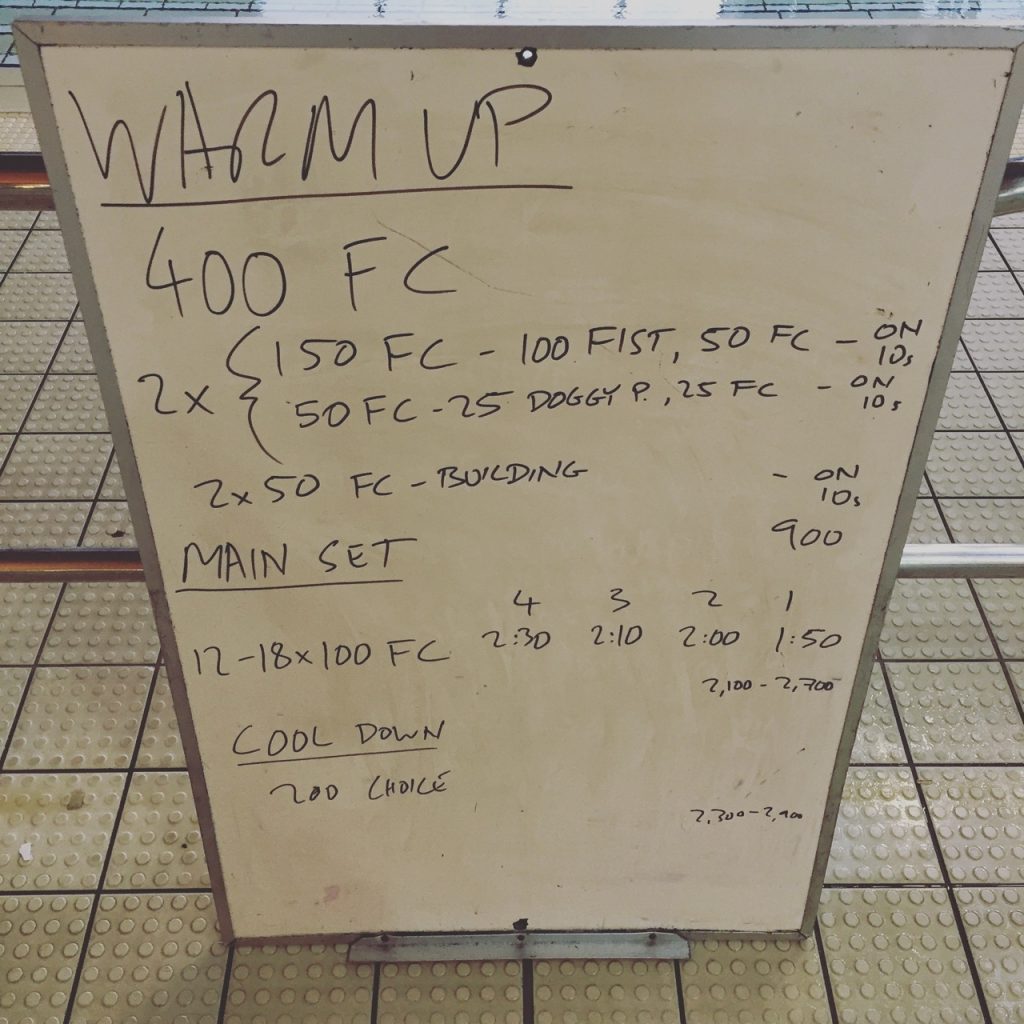 WARM UP
400 FC
2x { 150 FC - 100 FIST, 50 FC - ON 10s
50 FC - 25 DOGGY P., 25 FC - ON 10s
2x50 FC - BUILDING - ON 10s
900
MAIN SET
4 3 2 1
12-18x100 FC 2:30 2:10 2:00 1:50
2,100 - 2,700
COOL DOWN
200 CHOICE
2,300-2,900